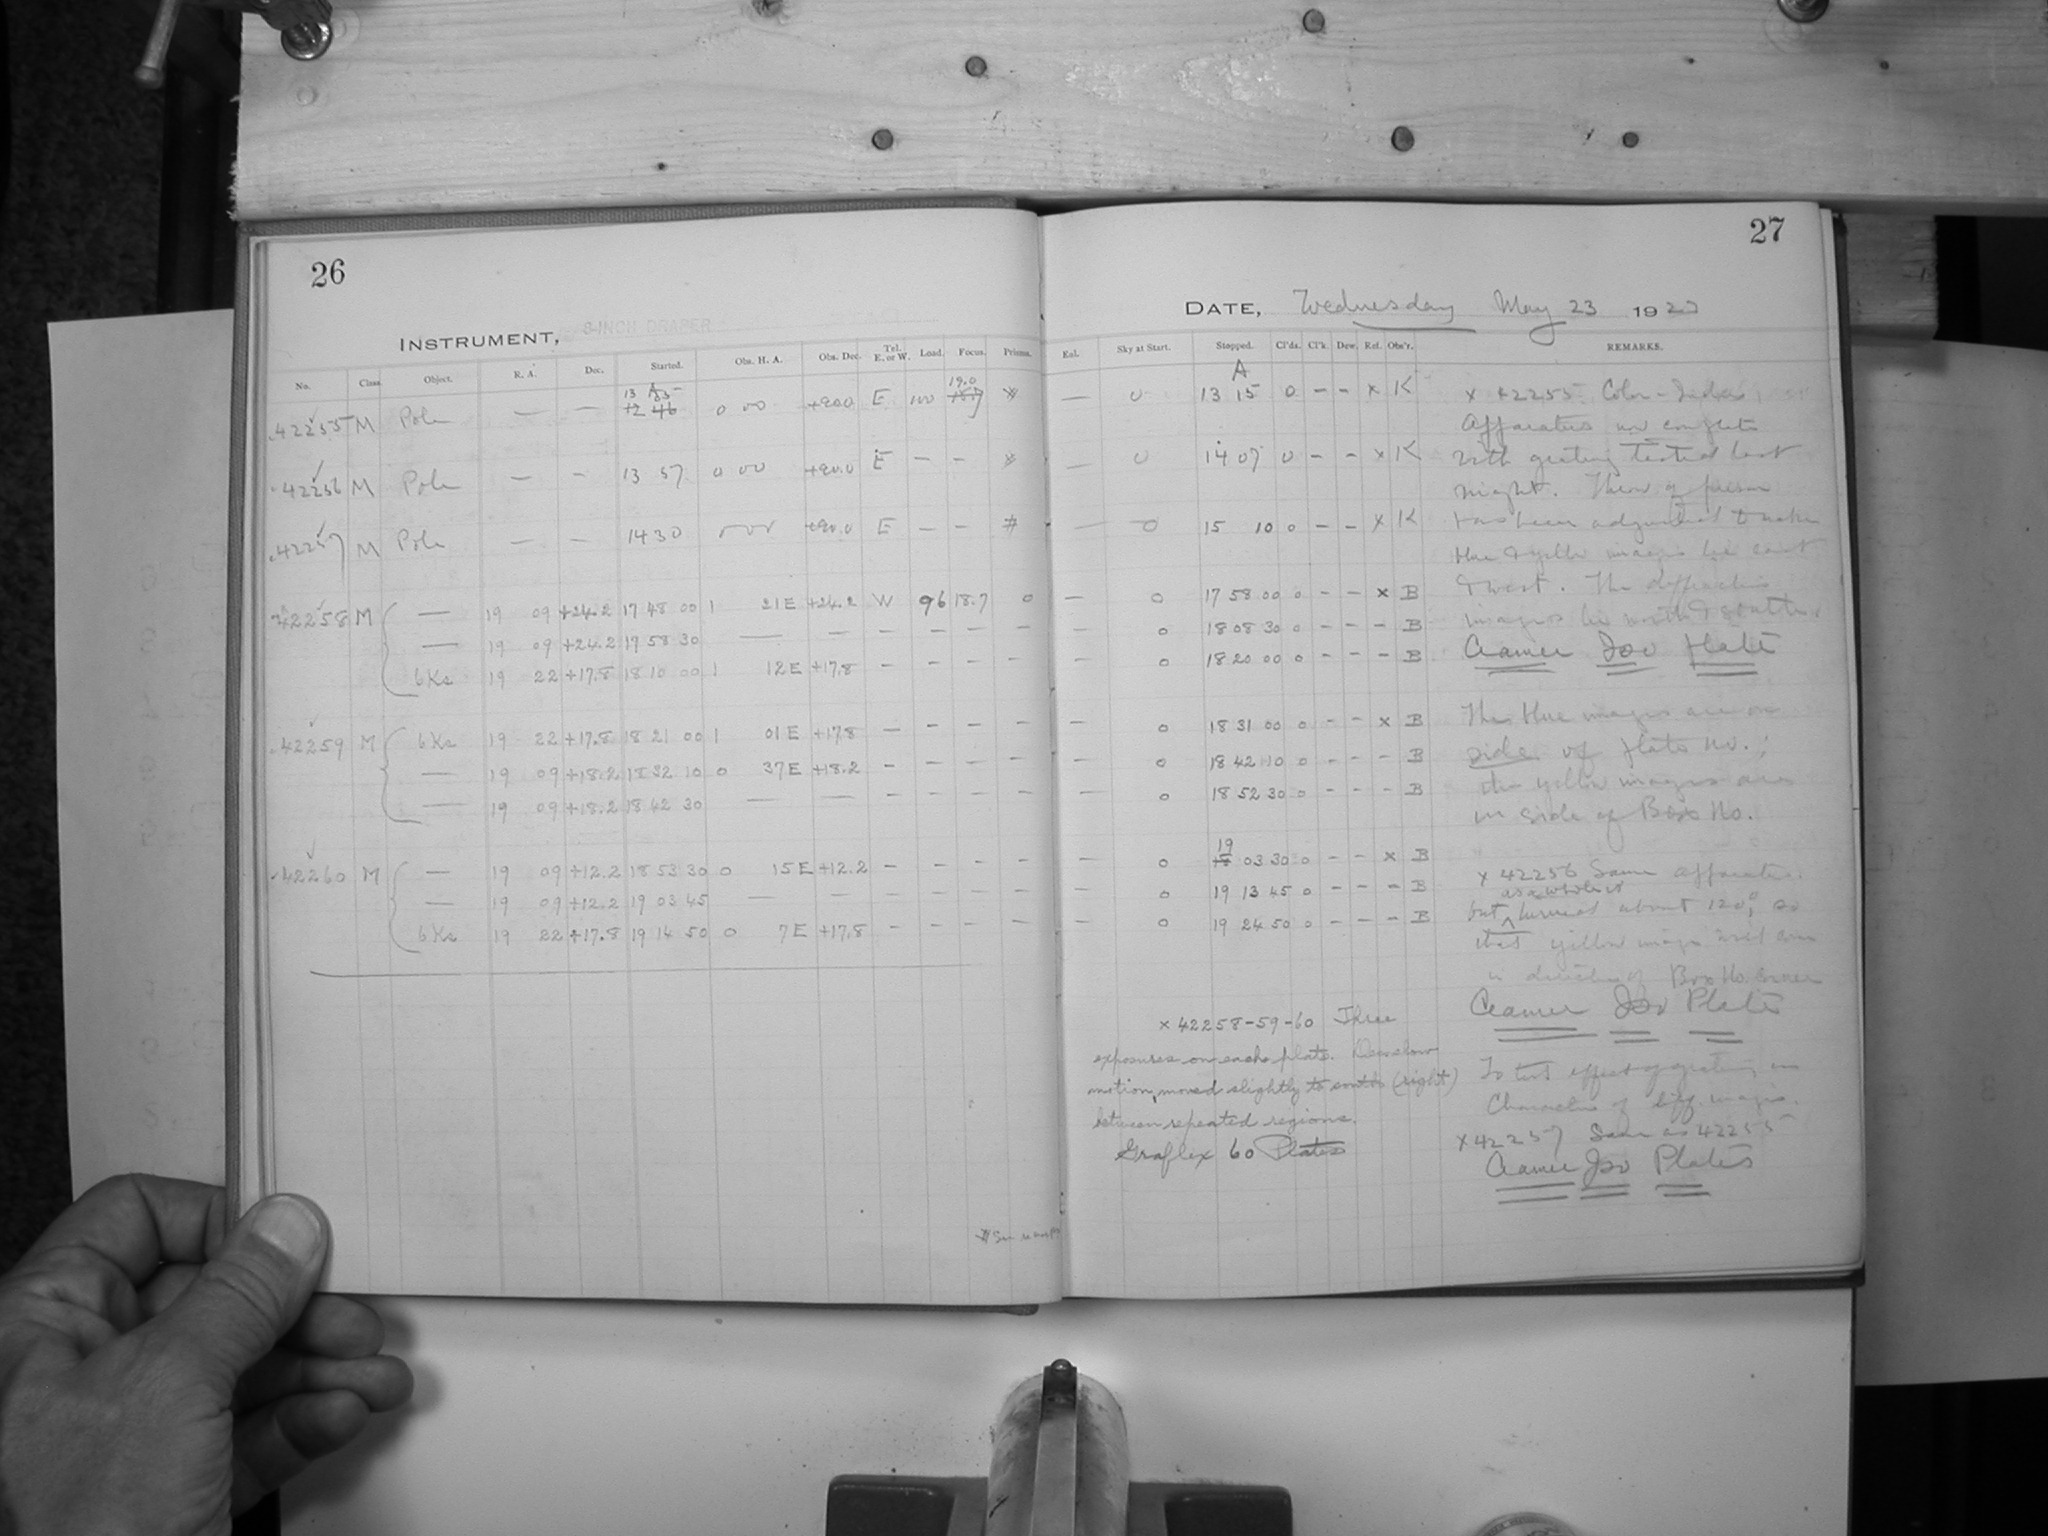 26
INSTRUMENT, 8-INCH DRAPER
No. Class Object. R. A. Dec. Started. Obs. H. A. Obs. Dec. Tel. E. or W. Load. Focus. Prisms.
13 05
19.0
42255 M Pole — — 12 46 0 00 +90.0 E 100 18.7 *
42256 M Pole — — 13 57 0 00 +90.0 E — — *
42257 M Pole — — 14 30 0 00 +90.0 E — — *
42258 M — 19 09 +24.2 17 48 00 1 21 E +24.2 W 96 18.7 0
— 19 09 +24.2 17 58 30 — — — — — —
6Ks 19 22 +17.8 18 10 00 1 12 E +17.8 — — — —
42259 M 6Ks 19 22 +17.8 18 21 00 1 01 E +17.8 — — — —
— 19 09 +18.2 18 32 10 0 37 E +18.2 — — — —
— 19 09 +18.2 18 42 30 — — — — — —
42260 M — 19 09 +12.2 18 53 30 0 15 E +12.2 — — — —
— 19 09 +12.2 19 03 45 — — — — — —
6Ks 19 22 +17.8 19 14 50 0 7 E +17.8 — — — —
27
DATE, Wednesday May 23 1923
Eol. Sky at Start. Stopped. Cl'ds. Cl'k. Dew. Ref. Obs'r. REMARKS.
A
— 0 13 15 0 – – x K
— 0 14 07 0 – – x K
— 0 15 10 0 – – x K
— 0 17 58 00 0 – – x B
— 0 18 08 30 0 – – – B
— 0 18 20 00 0 – – – B
— 0 18 31 00 0 – – x B
— 0 18 42 10 0 – – – B
— 0 18 52 30 0 – – – B
19
— 0 18 03 30 0 – – x B
— 0 19 13 45 0 – – – B
— 0 19 24 50 0 – – – B
x 42255 Color-Index
Apparatus now complete
with grating tested last
night. of prism
has been adjusted to make
blue & yellow images lie east
& west. The diffraction
images lie north & south.
Cramer Iso Plate
The blue images are on
side of plate no.;
the yellow images are
on side of Box No.
x 42256 Same apparatus
as a whole is
but turned about 120°, so
that yellow image
in direction of Box No.
Cramer Iso Plate
To test effect of grating on
Character of diff. images.
x 42257 Same as 42255
Cramer Iso Plates
x 42258-59-60 Three
exposures on each plate. Dec slow
motion, moved slightly to south (right)
between repeated regions.
Graflex 60 Plates